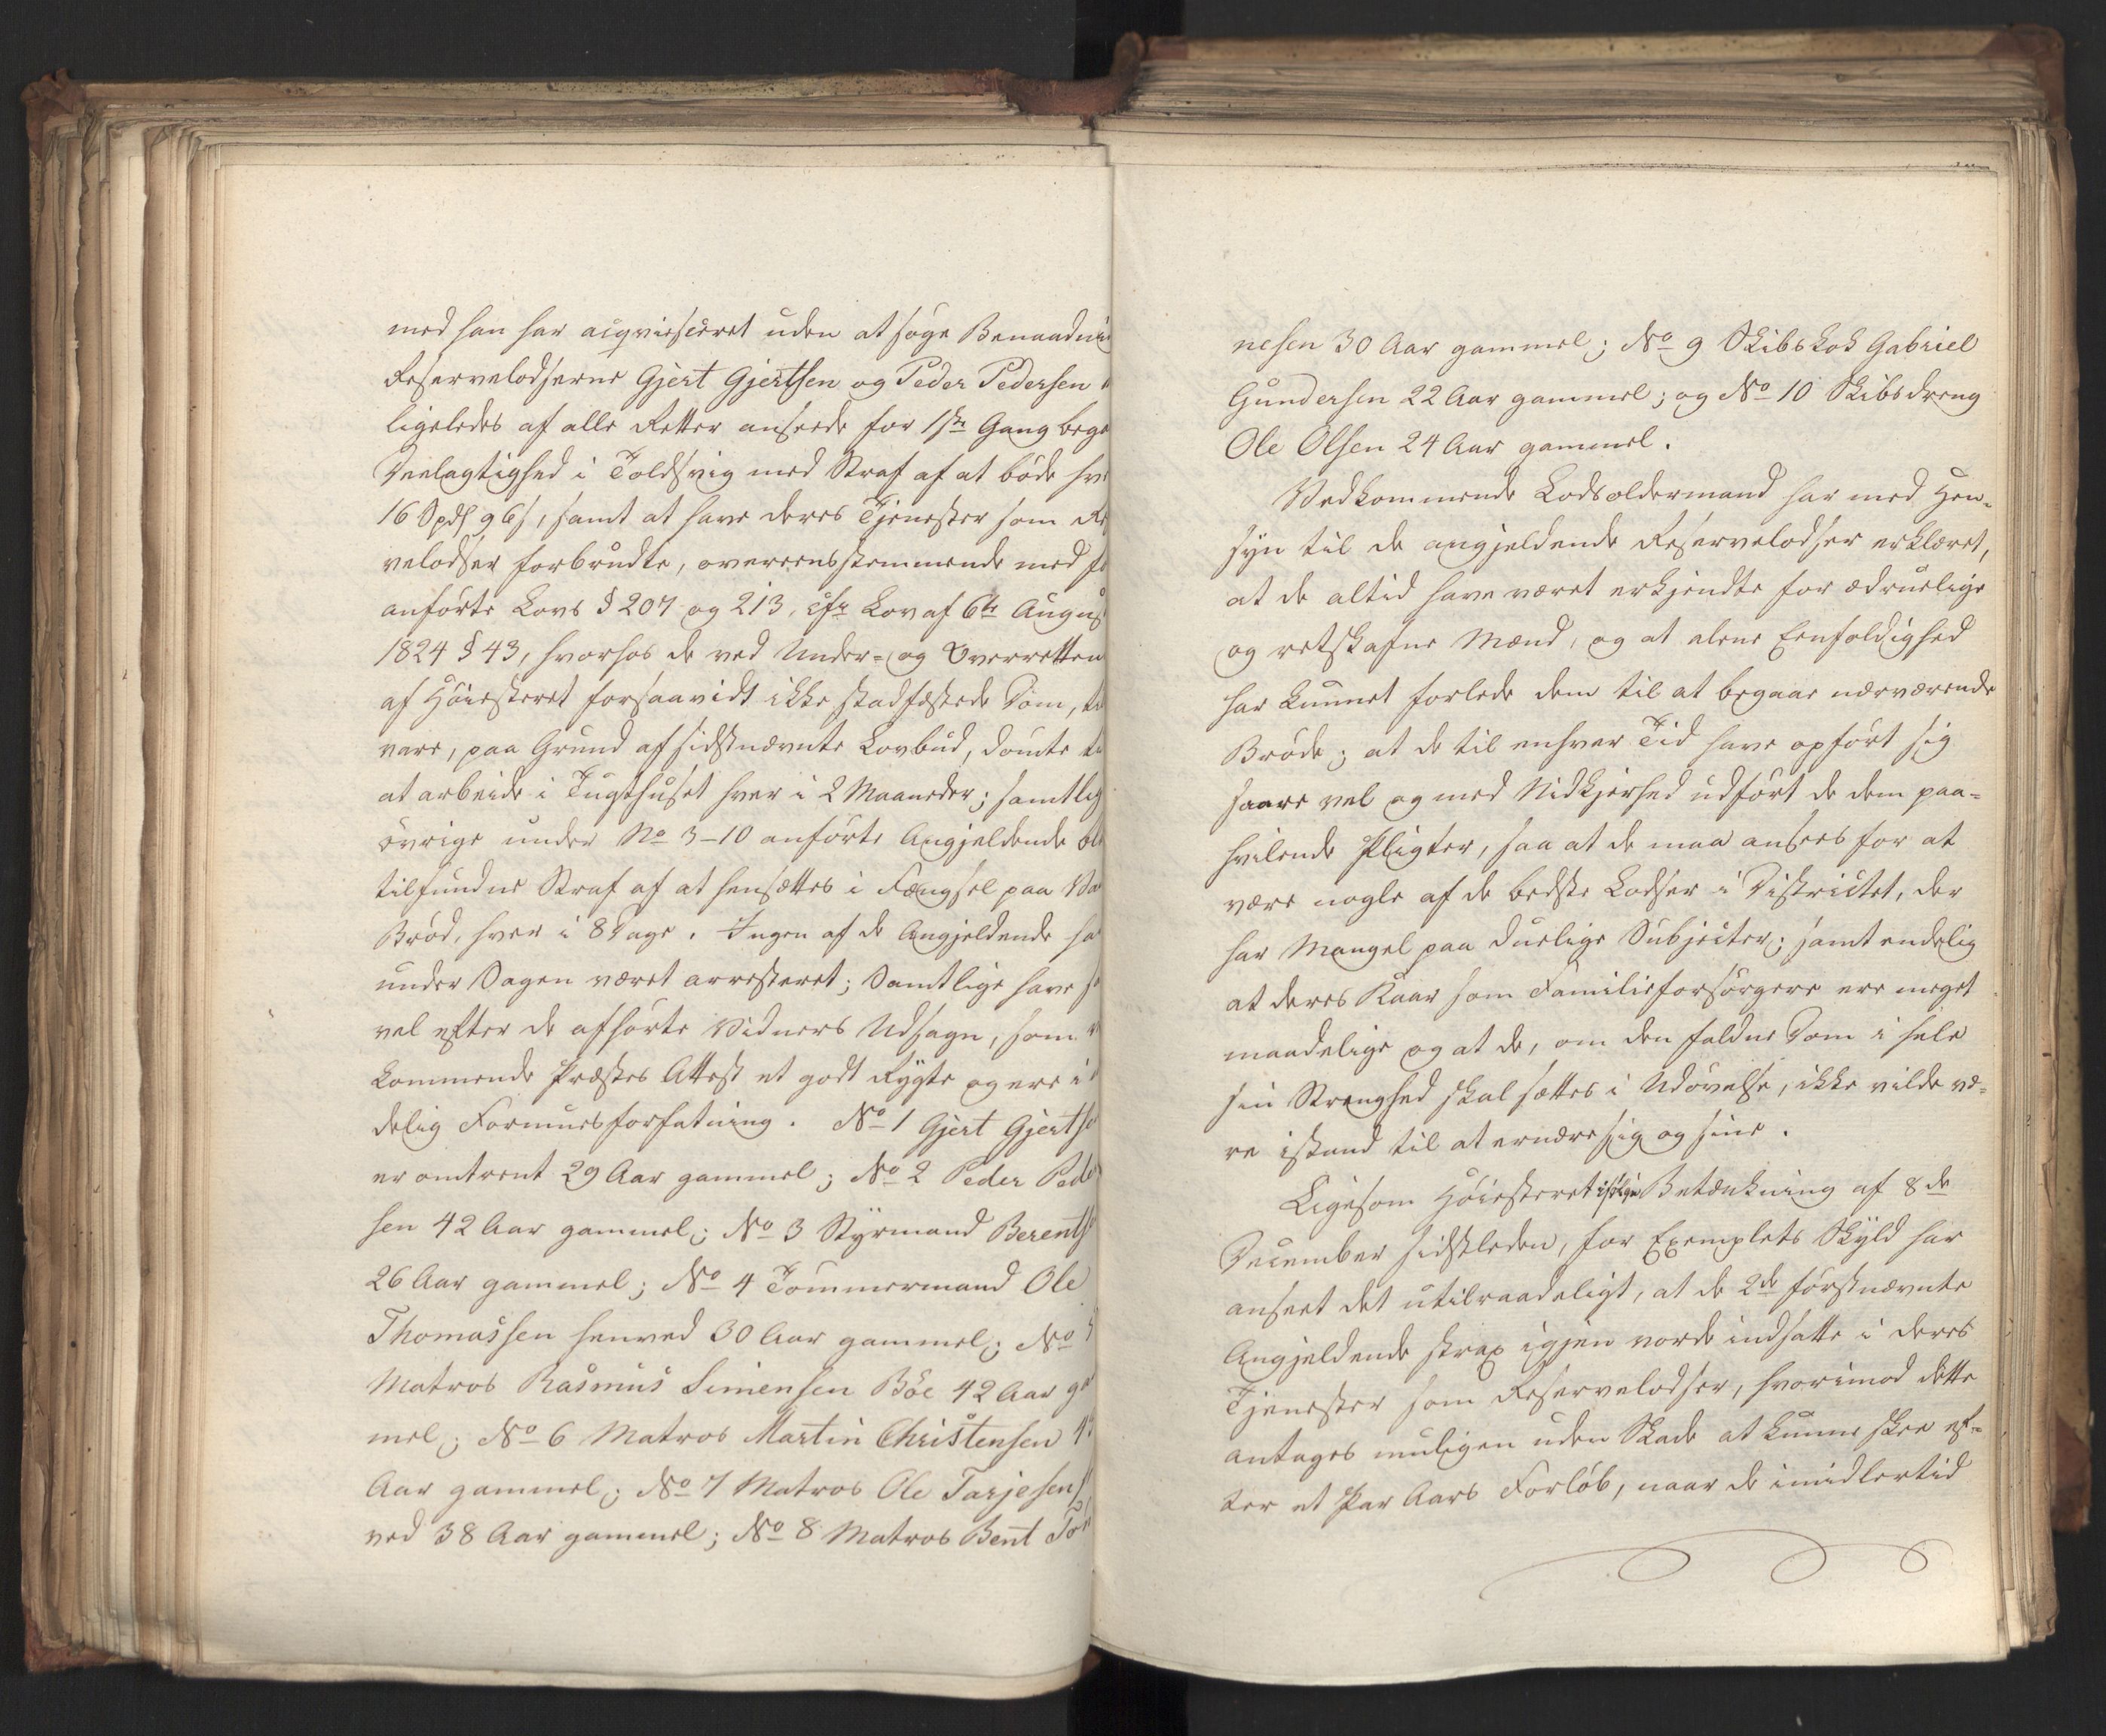 med han har acqviesceret uden at søge Benaadni
Reservelodserne Gjert Gjertsen og Peder Pedersen
ligeledes af alle Retter anseede for 1ste Gang bega
Deelagtighed i Toldsvig med Straf af at bøde hve
16 Spd 96 s, samt at have deres Tjenester som Re
velodser forbrudte, overeensstemmende med fø
anførte Lovs § 207 og 213, cfr Lov af 6te August
1824 § 43, hvorhos de ved Under- og Overretten
af Høiesteret forsaavidt ikke stadfæstede Dom, til
vare, paa Grund af sidstnævnte Lovbud, dømte til
at arbeide i Tugthuset hver i 2 Maaneder; samtlig
øvrige under No 3-10 anførte Angjeldende ble
tilfundne Straf af at hensættes i Fængsel paa Va
Brød, hver i 8 Dage. Ingen af de Angjeldende ha
under Sagen været arresteret; Samtlige have s
vel efter de afhørte Vidners Udsagn, som v
kommende Præstes Attest et godt Rygte og ere i
delig Formuesforfatning. No 1 Gjert Gjertse
er omtrent 29 Aar gammel; No 2 Peder Peder
sen 42 Aar gammel; No 3 Styrmand Berentse
26 Aar gammel; No 4 Tømmermand Ole
Thomassen henved 30 Aar gammel; No 5
Matros Rasmus Simensen Böe 42 Aar ga
mel; No 6 Matros Martin Christensen 43
Aar gammel; No 7 Matros Ole Tarjesen
ved 38 Aar gammel; No 8 Matros Bent Tør
nesen 30 Aar gammel; No 9 Skibskok Gabriel
Gundersen 22 Aar gammel; og No 10 Skibsdreng
Ole Olsen 24 Aar gammel.
Vedkommende Lodsoldermand har med Hen-
syn til de angjeldende Reservelodser erklæret,
at de altid have været erkjendte for ædruelige
og retskafne Mænd, og at alene Eenfoldighed
har kunnet forlede dem til at begaae nærværende
Brøde; at de til enhver Tid have opført sig
saare vel og med Nidkjerhed udført de dem paa-
hvilende Pligter, saa at de maa ansees for at
være nogle af de bedste Lodser i Districtet, der
har Mangel paa duelige Subjecter; samt endelig
at deres Kaar som Familieforsørgere ere meget
maadelige og at de, om den faldne Dom i hele
sin Strenghed skal sættes i Udøvelse, ikke vilde væ-
re istand til at ernære sig og sine.
Ligesom Høiesteret ifølge Betænkning af 8de
December sidstleden, for Exemplets Skyld har
anseet det utilraadeligt, at de 2de førstnævnte
Angjeldende strax igjen vorde indsatte i deres
Tjenester som Reservelodser, hvorimod dette
antages muligen uden Skade at kunne skee ef-
ter et Par Aars Forløb, naar de imidlertid